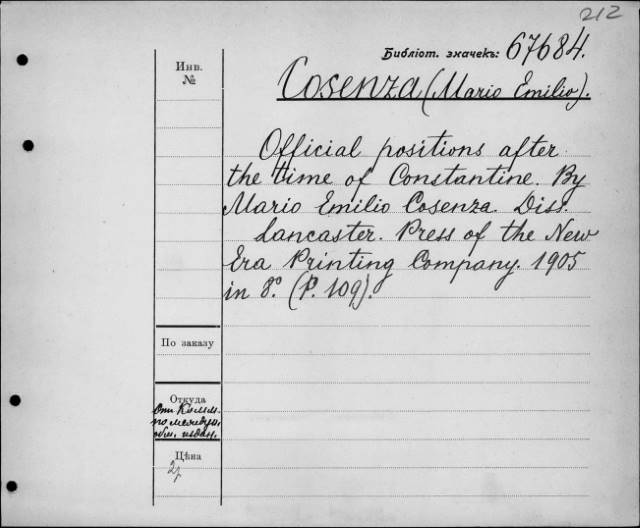 212
Библіот. значекъ: 67684.
Инв.
№
Cosenza (Mario Emilio).
Official positions after
the time of Constantine. By
Mario Emilio Cosenza. Diss.
Lancaster. Press of the New
Era Printing Company. 1905
in 8º. (P. 109).
По заказу
Откуда
Отъ Комм.
по междун.
обм. издан.
Цѣна